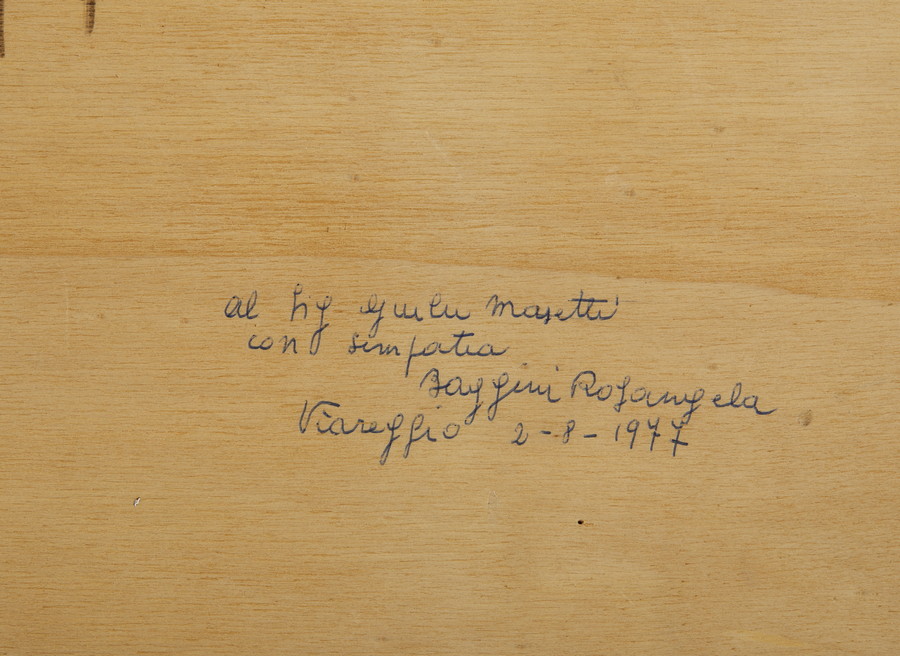 al Sig Masetti
con simpatia
Baggini Rosangela
Viareggio 2-8-1977